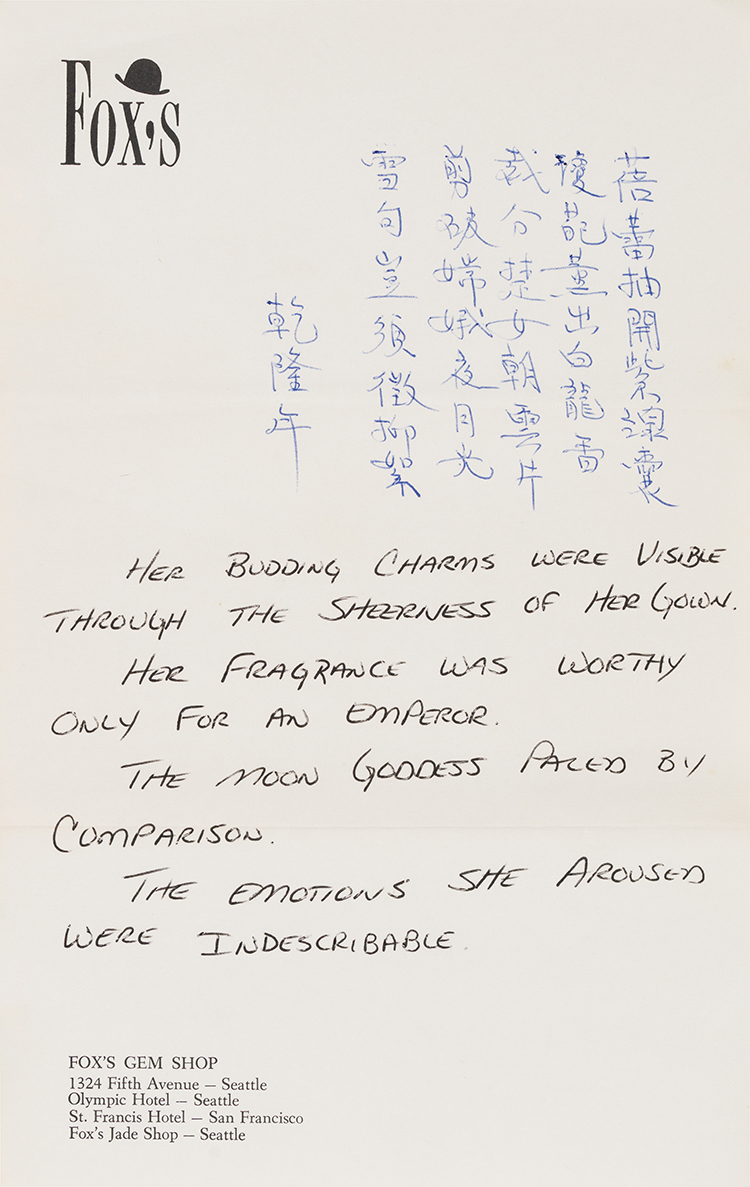 FOX'S
蓓蕾抽開紫線囊
瓊葩薰出白龍香
裁分楚女朝雲片
剪破嫦娥夜月光
雪句豈須徵柳絮
乾隆年
HER BUDDING CHARMS WERE VISIBLE
THROUGH THE SHEERNESS OF HER GOWN.
HER FRAGRANCE WAS WORTHY
ONLY FOR AN EMPEROR.
THE MOON GODDESS PALED BY
COMPARISON.
THE EMOTIONS SHE AROUSED
WERE INDESCRIBABLE.
FOX'S GEM SHOP
1324 Fifth Avenue – Seattle
Olympic Hotel – Seattle
St. Francis Hotel – San Francisco
Fox's Jade Shop – Seattle